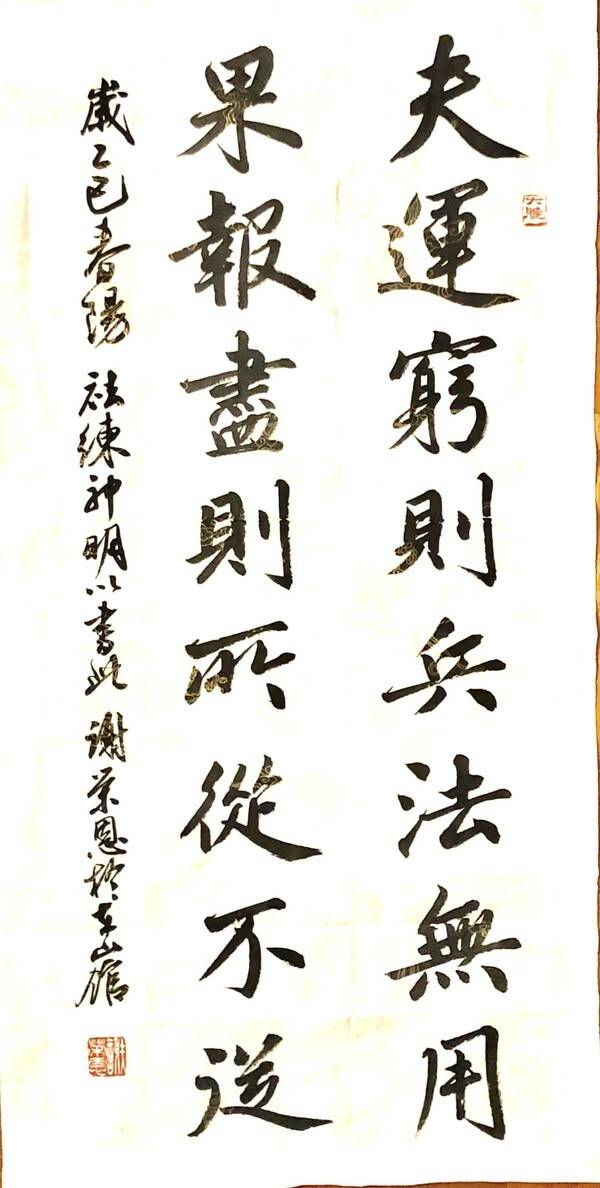 夫運窮則兵法無用
果報盡則所從不
歲乙巳春陽 練神明以書此 謝榮恩於東山館